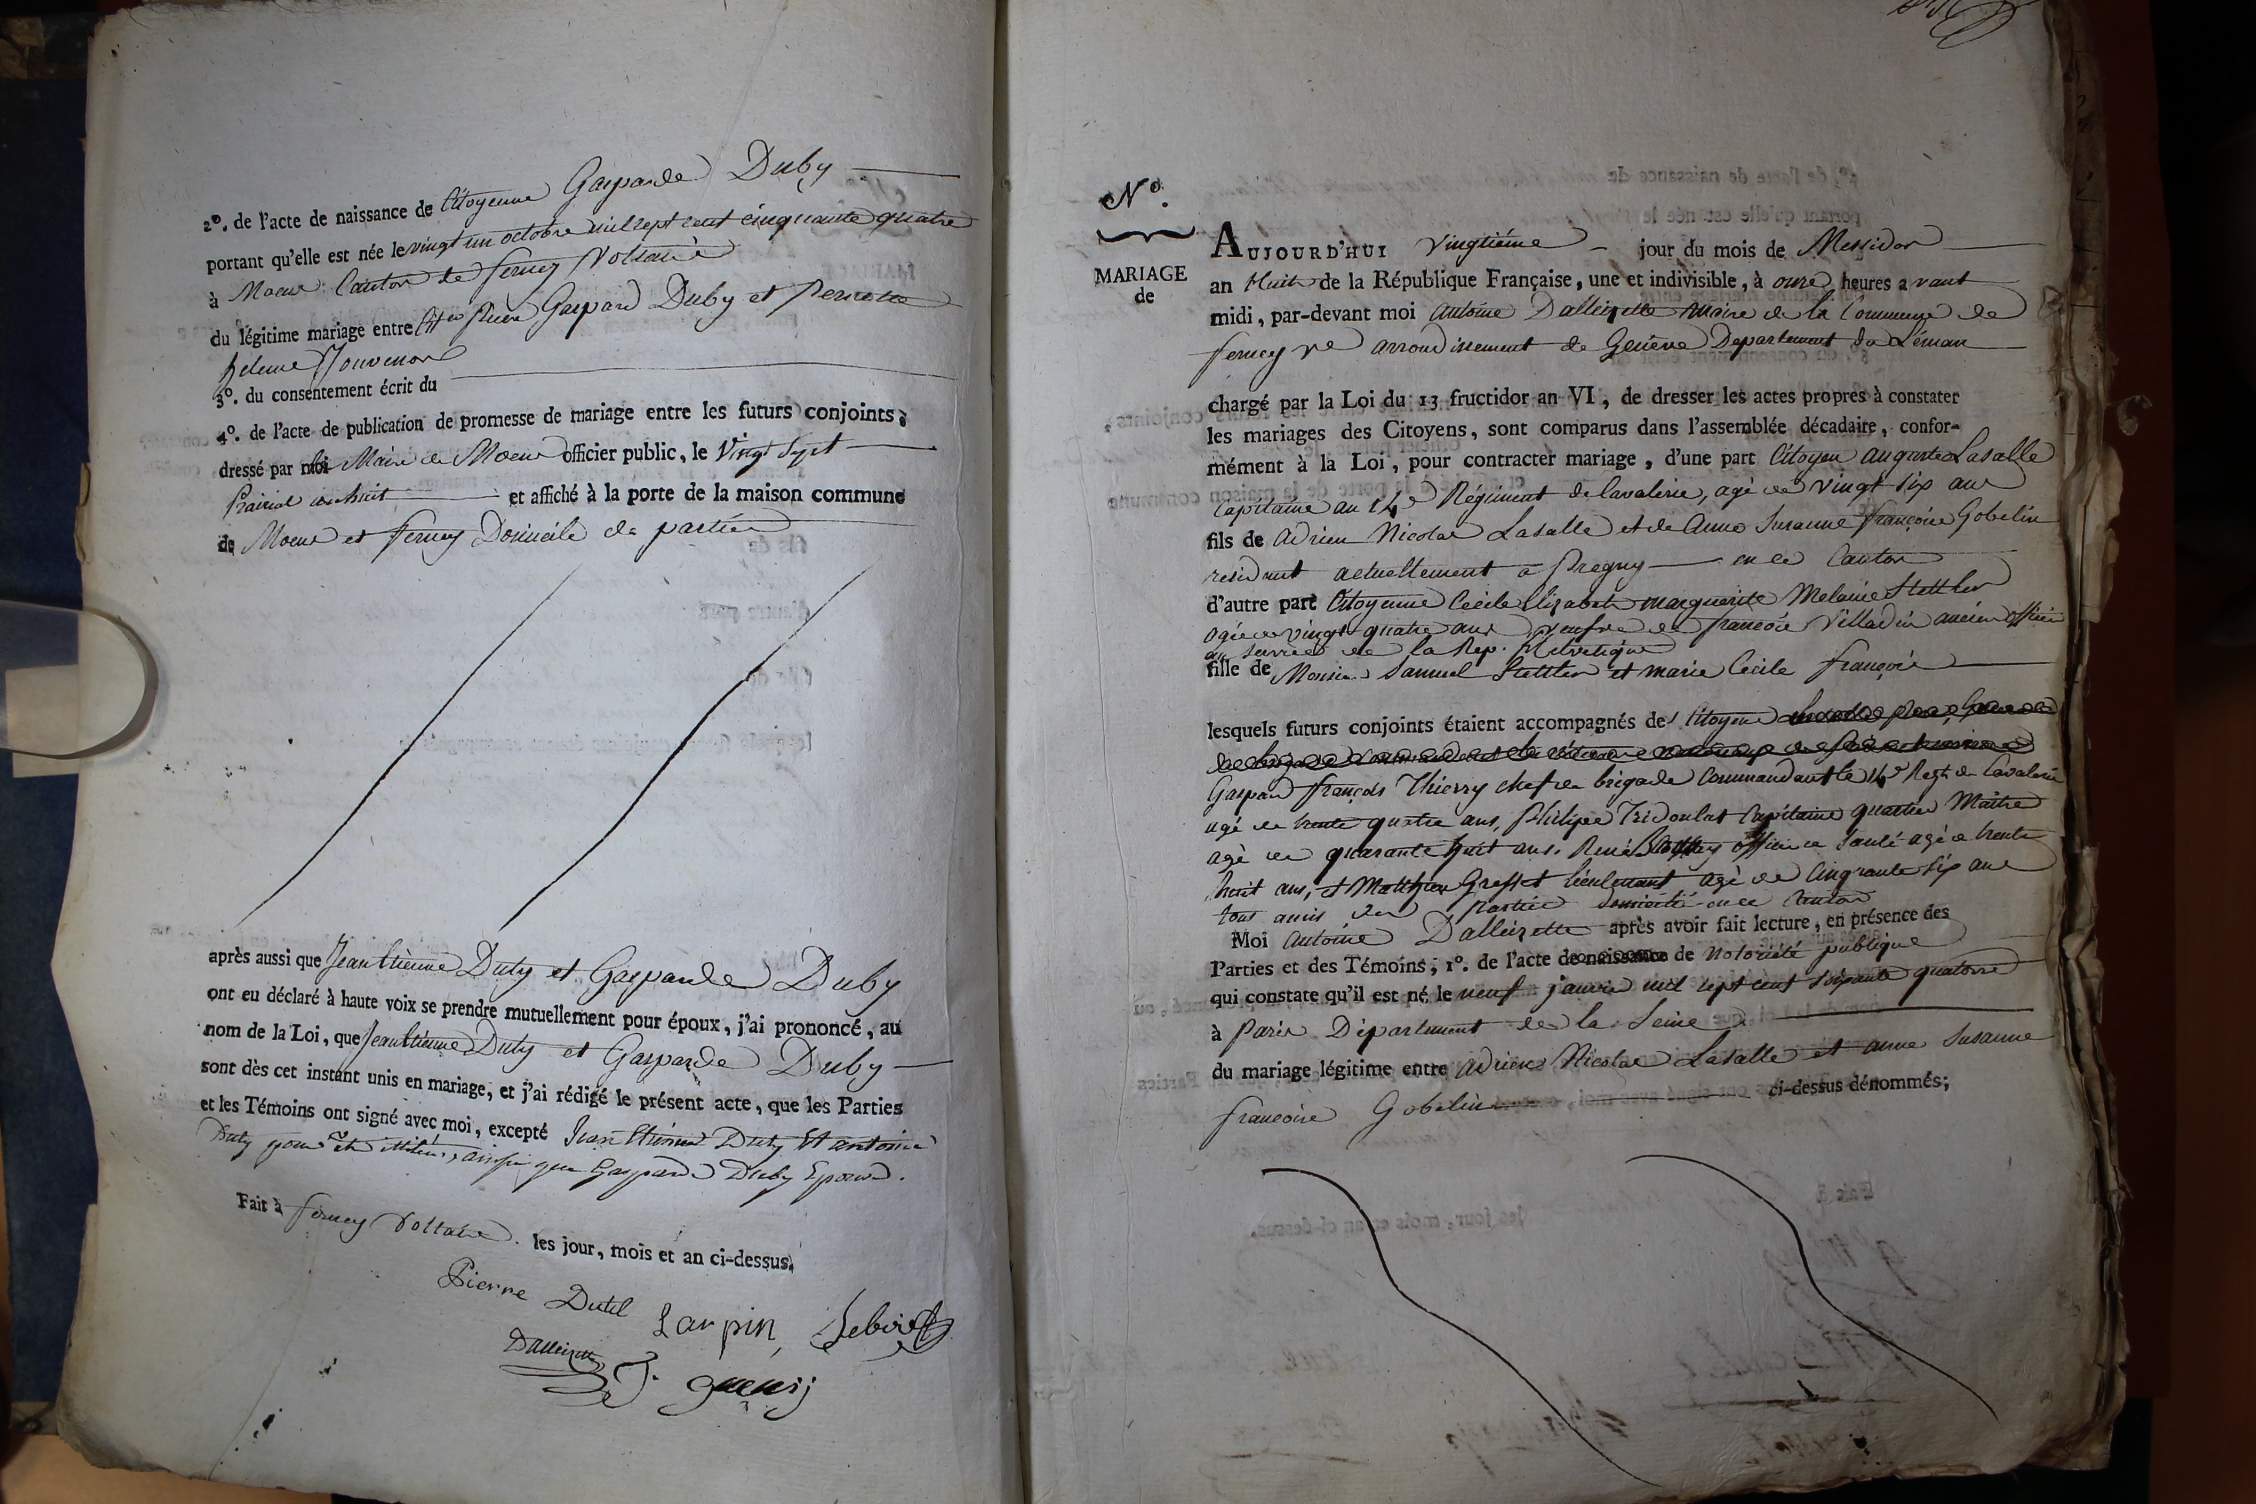 2º. de l'acte de naissance de Citoyenne Gasparde Duby
portant qu'elle est née le vingt un octobre mil sept cent cinquante quatre
à Moens Canton de ferney Voltaire
du légitime mariage entre Pierre Gaspard Duby et Pernette
helene Jouvenon
3º. du consentement écrit du
4º. de l'acte de publication de promesse de mariage entre les futurs conjoints,
dressé par moi Maire de Moens officier public, le Vingt Sept
Prairial an huit et affiché à la porte de la maison commune
de Moens et ferney Domicile de parties
après aussi que Jean Etienne Duty et Gasparde Duby
ont eu déclaré à haute voix se prendre mutuellement pour époux, j'ai prononcé, au
nom de la Loi, que Jean Etienne Duty et Gasparde Duby
sont dès cet instant unis en mariage, et j'ai rédigé le présent acte, que les Parties
et les Témoins ont signé avec moi, excepté Jean Etienne Duty Et antoine
Duty pour ainsi que Gasparde Duby Epouse.
Fait à ferney Voltaire. les jour, mois et an ci-dessus.
Pierre Dutel Larpin,
Dalleizette
J. guenij
Nº.
MARIAGE
de
AUJOURD'HUI vingtième jour du mois de Messidor
an Huit de la République Française, une et indivisible, à onze heures avant
midi, par-devant moi Antoine Dalleizette maire de la Commune de
ferney Vre arrondissement de Genève Departement du Léman
chargé par la Loi du 13 fructidor an VI, de dresser les actes propres à constater
les mariages des Citoyens, sont comparus dans l'assemblée décadaire, confor-
mément à la Loi, pour contracter mariage, d'une part Citoyen auguste Lasalle
Capitaine au 14e Régiment de Cavalerie, agé de vingt six ans
fils de Adrien Nicolas Lasalle et de Anne Susanne françoise Gobelin
residant actuellement a Pregny en ce Canton
d'autre part Citoyenne Cecile Elizabeth marguerite Melanie Stettler
agée de vingt quatre ans veufve de francois Villadin ancien officier
au service de la Rep. Helvetique
fille de Monsieur Samuel Stettler et marie Cecile françoise
lesquels futurs conjoints étaient accompagnés de Citoyens
Gaspard françois Thierry chef de brigade Commandant le 14e Regt. de Cavalerie
agé de trente quatre ans, Philipe Tridoulat Capitaine quartier Maitre
agé de quarante huit ans, René officier de santé agé de trente
huit ans, et Matthieu Gresset lieutenant agé de Cinquante six ans
tous amis des parties domicilié en ce Canton
Moi Antoine Dalleizette après avoir fait lecture, en présence des
Parties et des Témoins, 1º. de l'acte de naissance de notoriété publique
qui constate qu'il est né le neuf janvier mil sept cent soixante quatorze
à Paris Département de la Seine
du mariage légitime entre Adrien Nicolas Lasalle et anne Susanne
francoise Gobelin ci-dessus dénommés;